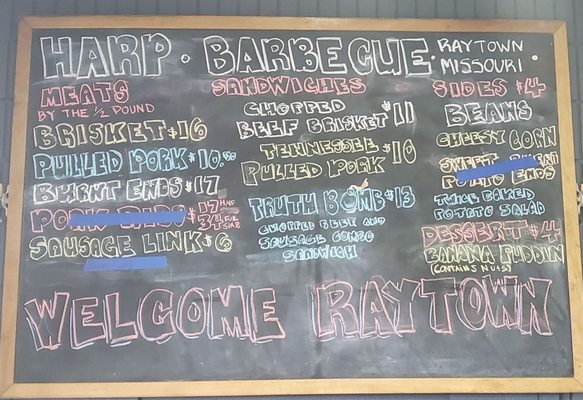 HARP · BARBECUE · RAYTOWN
MISSOURI
MEATS
BY THE ½ POUND
BRISKET $16
PULLED PORK $10.50
BURNT ENDS $17
PORK RIBS $17 HALF
34 FULL
SLAB
SAUSAGE LINK $6
SANDWICHES
CHOPPED
BEEF BRISKET $11
TENNESSEE
PULLED PORK $10
TRUTH BOMB $13
CHOPPED BEEF AND
SAUSAGE COMBO
SANDWICH
SIDES $4
BEANS
CHEESY CORN
SWEET BURNT
POTATO ENDS
TWICE BAKED
POTATO SALAD
DESSERT $4
BANANA PUDDIN
(CONTAINS NUTS)
WELCOME RAYTOWN